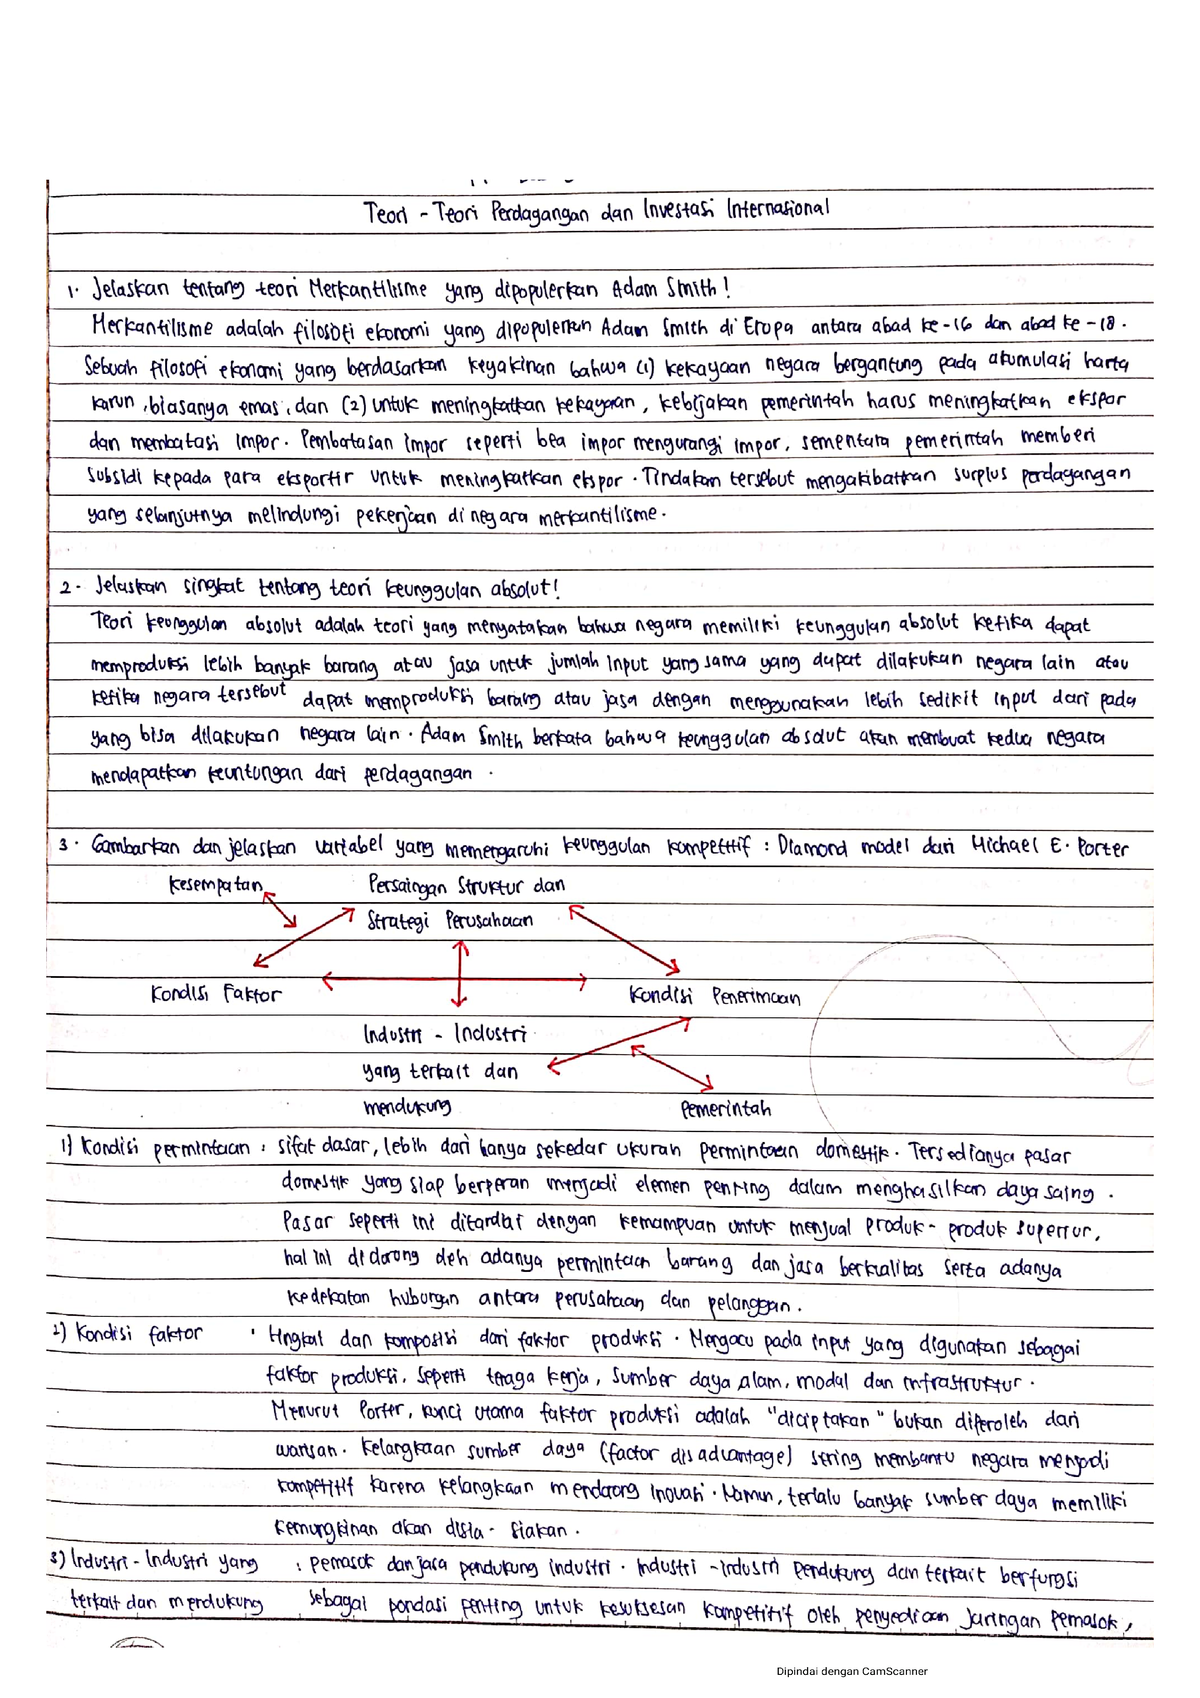 Teori - Teori Perdagangan dan Investasi Internasional
1. Jelaskan tentang teori Merkantilisme yang dipopulerkan Adam Smith!
Merkantilisme adalah filosofi ekonomi yang dipopulerkan Adam Smith di Eropa antara abad ke-16 dan abad ke-18.
Sebuah filosofi ekonomi yang berdasarkan keyakinan bahwa (1) kekayaan negara bergantung pada akumulasi harta
karun, biasanya emas, dan (2) untuk meningkatkan kekayaan, kebijakan pemerintah harus meningkatkan ekspor
dan membatasi impor. Pembatasan impor seperti bea impor mengurangi impor, sementara pemerintah memberi
subsidi kepada para eksportir untuk meningkatkan ekspor. Tindakan tersebut mengakibatkan surplus perdagangan
yang selanjutnya melindungi pekerjaan di negara merkantilisme.
2. Jelaskan singkat tentang teori keunggulan absolut!
Teori keunggulan absolut adalah teori yang menyatakan bahwa negara memiliki keunggulan absolut ketika dapat
memproduksi lebih banyak barang atau jasa untuk jumlah input yang sama yang dapat dilakukan negara lain atau
ketika negara tersebut dapat memproduksi barang atau jasa dengan menggunakan lebih sedikit input dari pada
yang bisa dilakukan negara lain. Adam Smith berkata bahwa keunggulan absolut akan membuat kedua negara
mendapatkan keuntungan dari perdagangan.
3. Gambarkan dan jelaskan variabel yang memengaruhi keunggulan kompetitif : Diamond model dari Michael E. Porter
Kesempatan Persaingan Struktur dan
Strategi Perusahaan
Kondisi Faktor Kondisi Penerimaan
Industri - Industri
yang terkait dan
mendukung Pemerintah
1) Kondisi permintaan : sifat dasar, lebih dari hanya sekedar ukuran permintaan domestik. Tersedianya pasar
domestik yang siap berperan menjadi elemen penting dalam menghasilkan daya saing.
Pasar seperti ini ditandai dengan kemampuan untuk menjual produk-produk superior,
hal ini didorong oleh adanya permintaan barang dan jasa berkualitas serta adanya
kedekatan hubungan antara perusahaan dan pelanggan.
2) Kondisi faktor : tingkat dan komposisi dari faktor produksi. Mengacu pada input yang digunakan sebagai
faktor produksi, seperti tenaga kerja, sumber daya alam, modal dan infrastruktur.
Menurut Porter, kunci utama faktor produksi adalah "diciptakan" bukan diperoleh dari
warisan. Kelangkaan sumber daya (factor disadvantage) sering membantu negara menjadi
kompetitif karena kelangkaan mendorong inovasi. Namun, terlalu banyak sumber daya memiliki
kemungkinan akan disia-siakan.
3) Industri - Industri yang : pemasok dan jasa pendukung industri. Industri-industri pendukung dan terkait berfungsi
terkait dan mendukung sebagai pondasi penting untuk kesuksesan kompetitif oleh penyediaan jaringan pemasok,
Dipindai dengan CamScanner